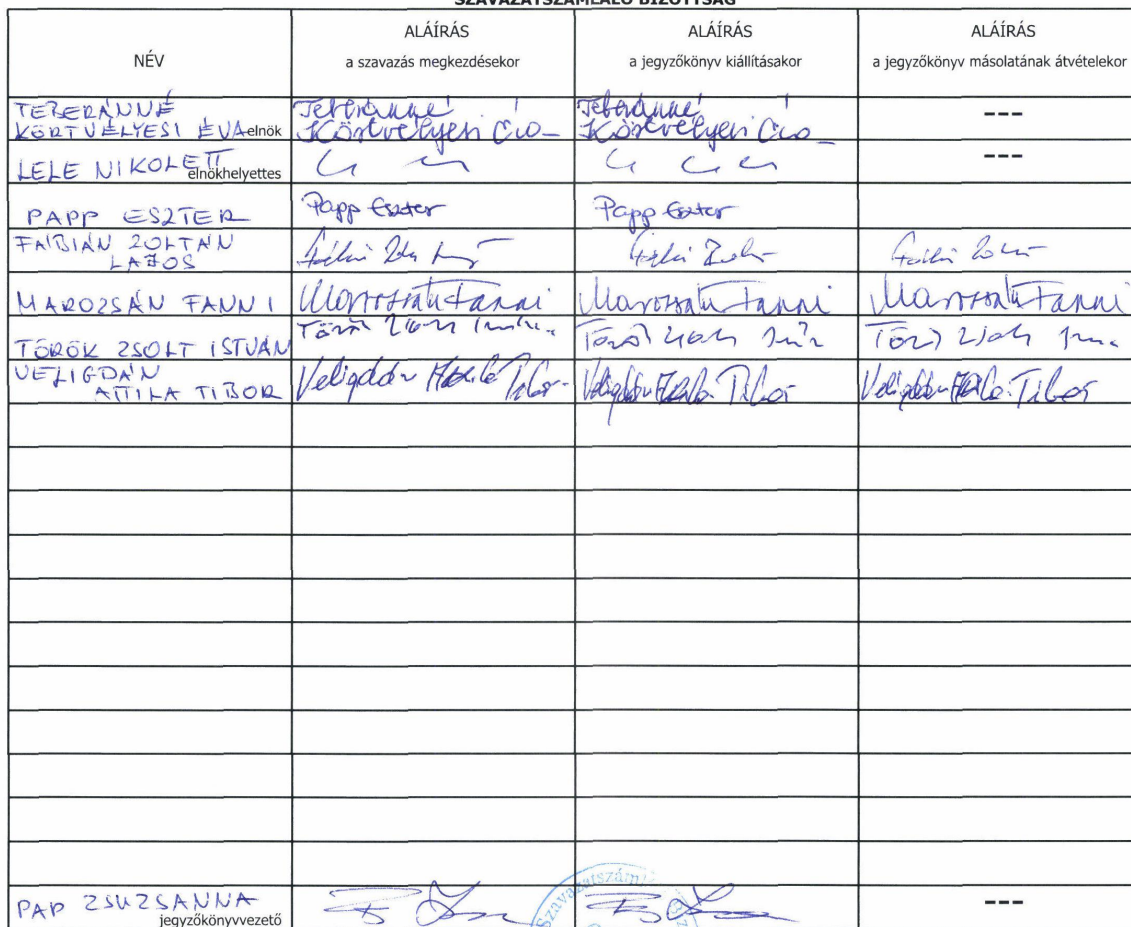 SZAVAZATSZÁMLÁLÓ BIZOTTSÁG
NÉV
ALÁÍRÁS
a szavazás megkezdésekor
ALÁÍRÁS
a jegyzőkönyv kiállításakor
ALÁÍRÁS
a jegyzőkönyv másolatának átvételekor
TEBERÁNNÉ
KÖRTVÉLYESI ÉVA elnök
Teberánné
Körtvélyesi Éva
Teberánné
Körtvélyesi Éva
---
LELE NIKOLETT
elnökhelyettes
---
PAPP ESZTER
Papp Eszter
Papp Eszter
FÁBIÁN ZOLTÁN
LAJOS
MAROZSÁN FANNI
Marozsán Fanni
Marozsán Fanni
Marozsán Fanni
TÖRÖK ZSOLT ISTVÁN
Török Zsolt
Török Zsolt
Török Zsolt
VELIGDÁN
ATTILA TIBOR
Veligdán Attila Tibor
Veligdán Attila Tibor
Veligdán Attila Tibor
PAP ZSUZSANNA
jegyzőkönyvvezető
Szavazatszám
---